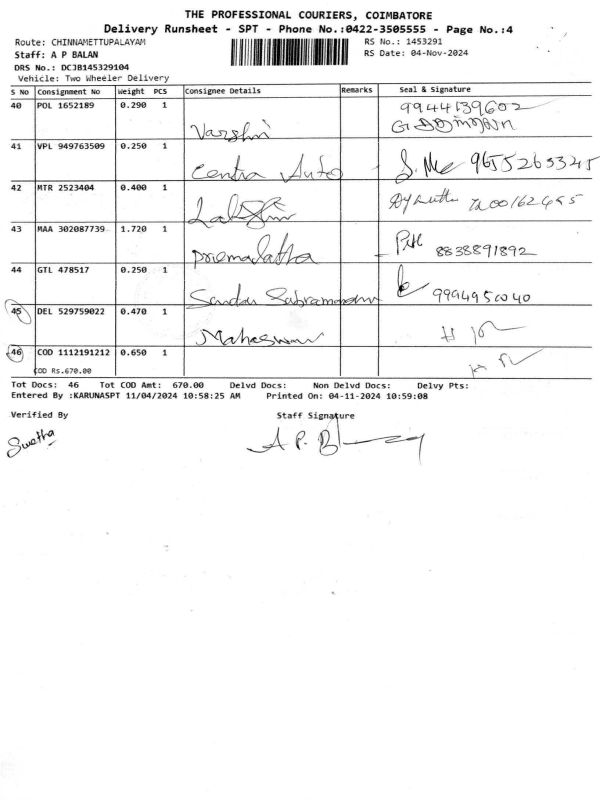 THE PROFESSIONAL COURIERS, COIMBATORE
Delivery Runsheet - SPT - Phone No.:0422-3505555 - Page No.:4
Route: CHINNAMETTUPALAYAM RS No.: 1453291
Staff: A P BALAN RS Date: 04-Nov-2024
DRS No.: DCJB145329104
Vehicle: Two Wheeler Delivery
S No Consignment No Weight PCS Consignee Details Remarks Seal & Signature
40 POL 1652189 0.290 1 9944139602
Varshni
41 VPL 949763509 0.250 1 9655265345
Centra Auto
42 MTR 2523404 0.400 1
43 MAA 302087739 1.720 1
Priemalatha 8838891892
44 GTL 478517 0.250 1
9994950040
45 DEL 529759022 0.470 1
Maheswari
46 COD 1112191212 0.650 1
COD Rs.670.00
Tot Docs: 46 Tot COD Amt: 670.00 Delvd Docs: Non Delvd Docs: Delvy Pts:
Entered By :KARUNASPT 11/04/2024 10:58:25 AM Printed On: 04-11-2024 10:59:08
Verified By Staff Signature
Swetha
A P. B